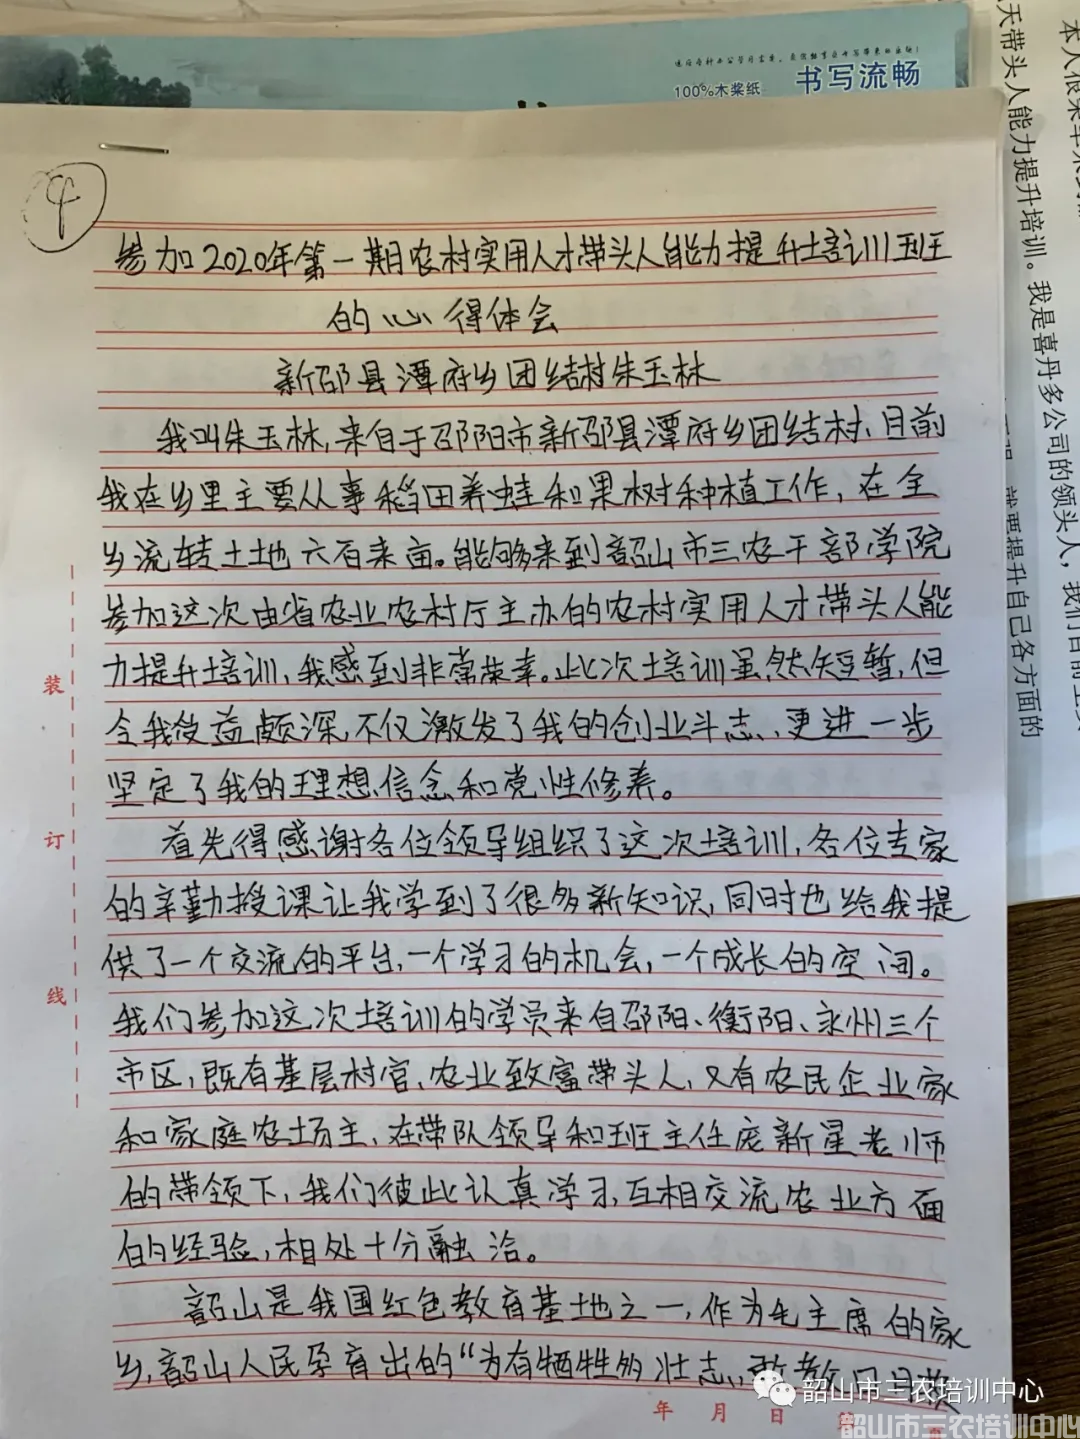 100%木桨纸
书写流畅
本人很荣幸来到
天带头人能力提升培训。我是喜丹多公司的领头人，我们目前主要
就要提升自己各方面的
4
参加2020年第一期农村实用人才带头人能力提升培训班
的心得体会
新邵县潭府乡团结村朱玉林
我叫朱玉林,来自于邵阳市新邵县潭府乡团结村、目前
我在乡里主要从事稻田养蛙和果树种植工作，在全
乡流转土地六百来亩。能够来到韶山市三农干部学院
参加这次由省农业农村厅主办的农村实用人才带头人能
力提升培训,我感到非常荣幸。此次培训虽然短暂,但
令我受益颇深,不仅激发了我的创业斗志,更进一步
坚定了我的理想信念和党性修养。
首先得感谢各位领导组织了这次培训,各位专家
的辛勤授课让我学到了很多新知识,同时也给我提
供了一个交流的平台,一个学习的机会,一个成长的空间。
我们参加这次培训的学员来自邵阳、衡阳、永州三个
市区,既有基层村官、农业致富带头人,又有农民企业家
和家庭农场主、在带队领导和班主任庞新星老师
的带领下,我们彼此认真学习,互相交流农业方面
的经验,相处十分融洽。
韶山是我国红色教育基地之一,作为毛主席的家
乡,韶山人民孕育出的“为有牺牲多壮志,敢教日月换
装
订
线
年 月 日 第
韶山市三农培训中心
韶山市三农培训中心